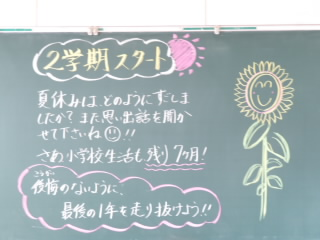 2学期スタート
夏休みは、どのように過しま
したか？また思い出話を聞か
せて下さいね!!
さあ小学校生活も残り7ヶ月!
こうかい
後悔のないように、
最後の1年を走り抜けよう!!